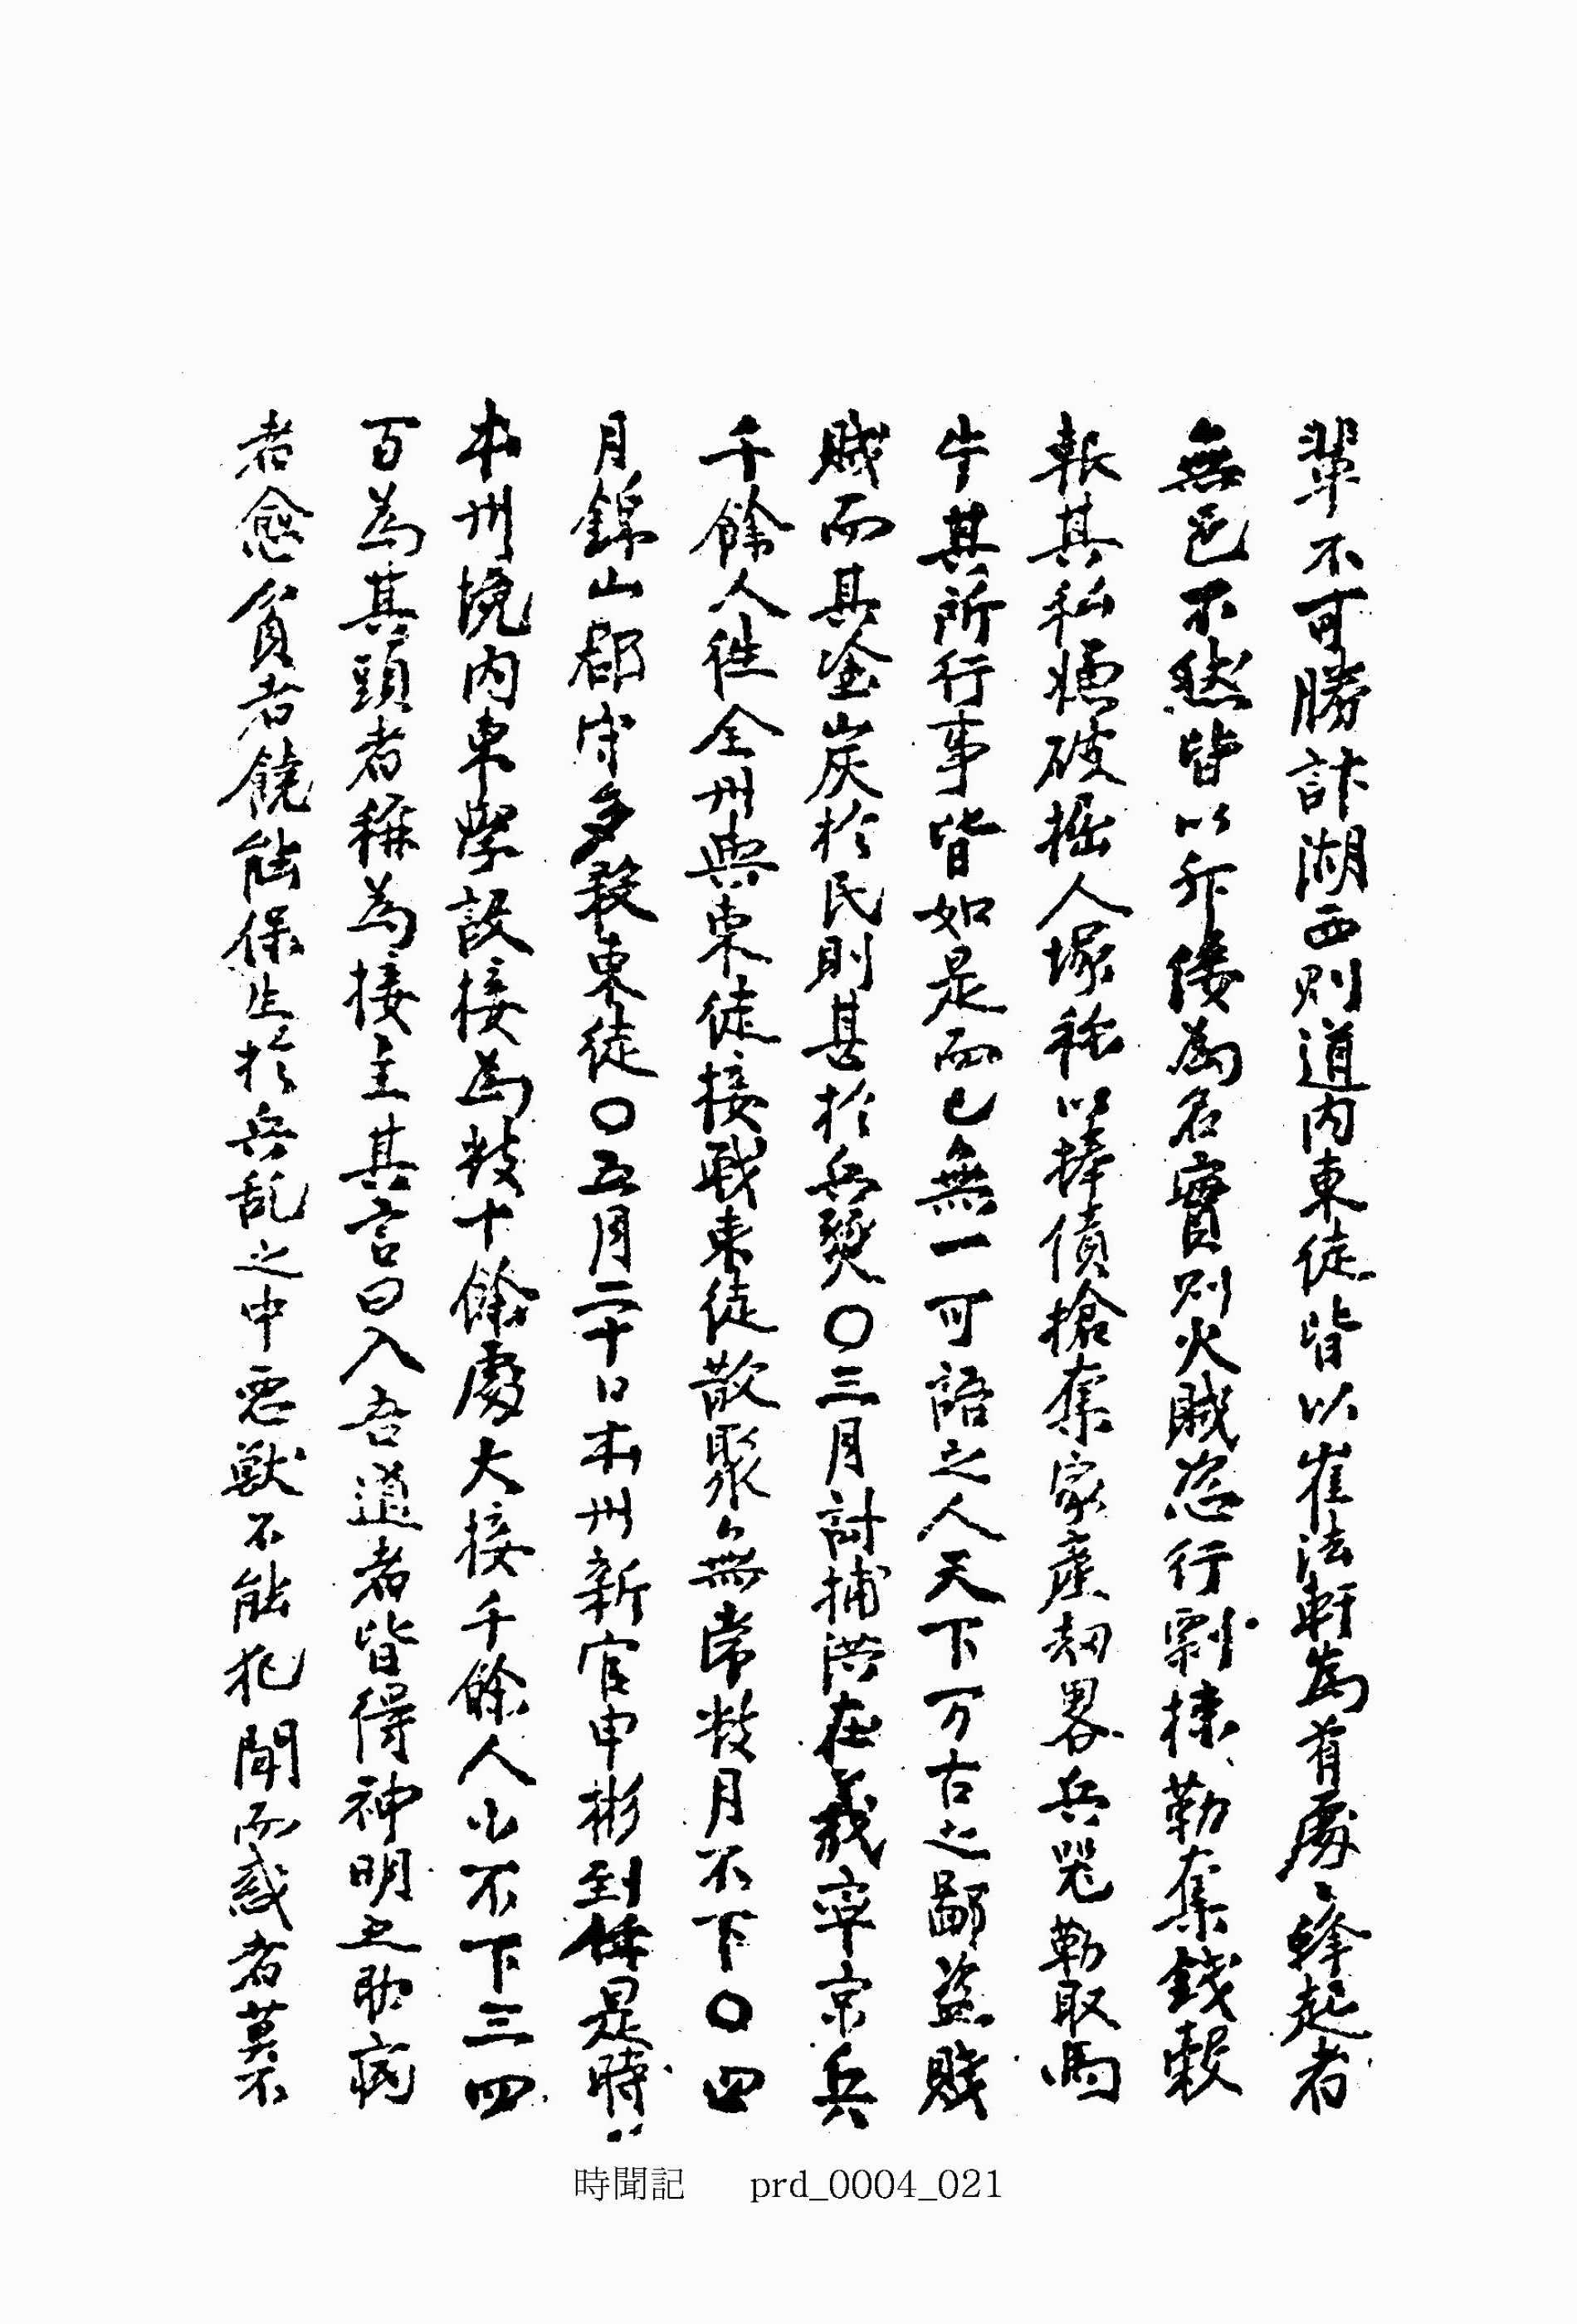 輩不可勝計湖西則道内東徒皆以崔法軒爲有處〻蜂起者
無邑不然皆以斥倭爲名實則火賊恣行剽掠勒奪錢穀
報其私憾破掘人塚稱以捧債搶奪家産刼畧兵器勒取馬
牛其所行事皆如是而已無一可語之人天下万古之鄙盜賤
賊而其塗炭於民則甚於兵燹〇三月討捕洪在羲率京兵
千餘人徃全州與東徒接戰東徒散聚無常数月不下〇四
月錦山郡守多殺東徒〇五月二十日本州新官申彬到任是時
本州境内東學設接爲数十餘處大接千餘人小不下三四
百爲其頭者稱爲接主其言曰入吾道者皆得神明之助病
者愈貧者饒能保生於兵乱之中惡獸不能犯聞而惑者莫不
時聞記 prd_0004_021